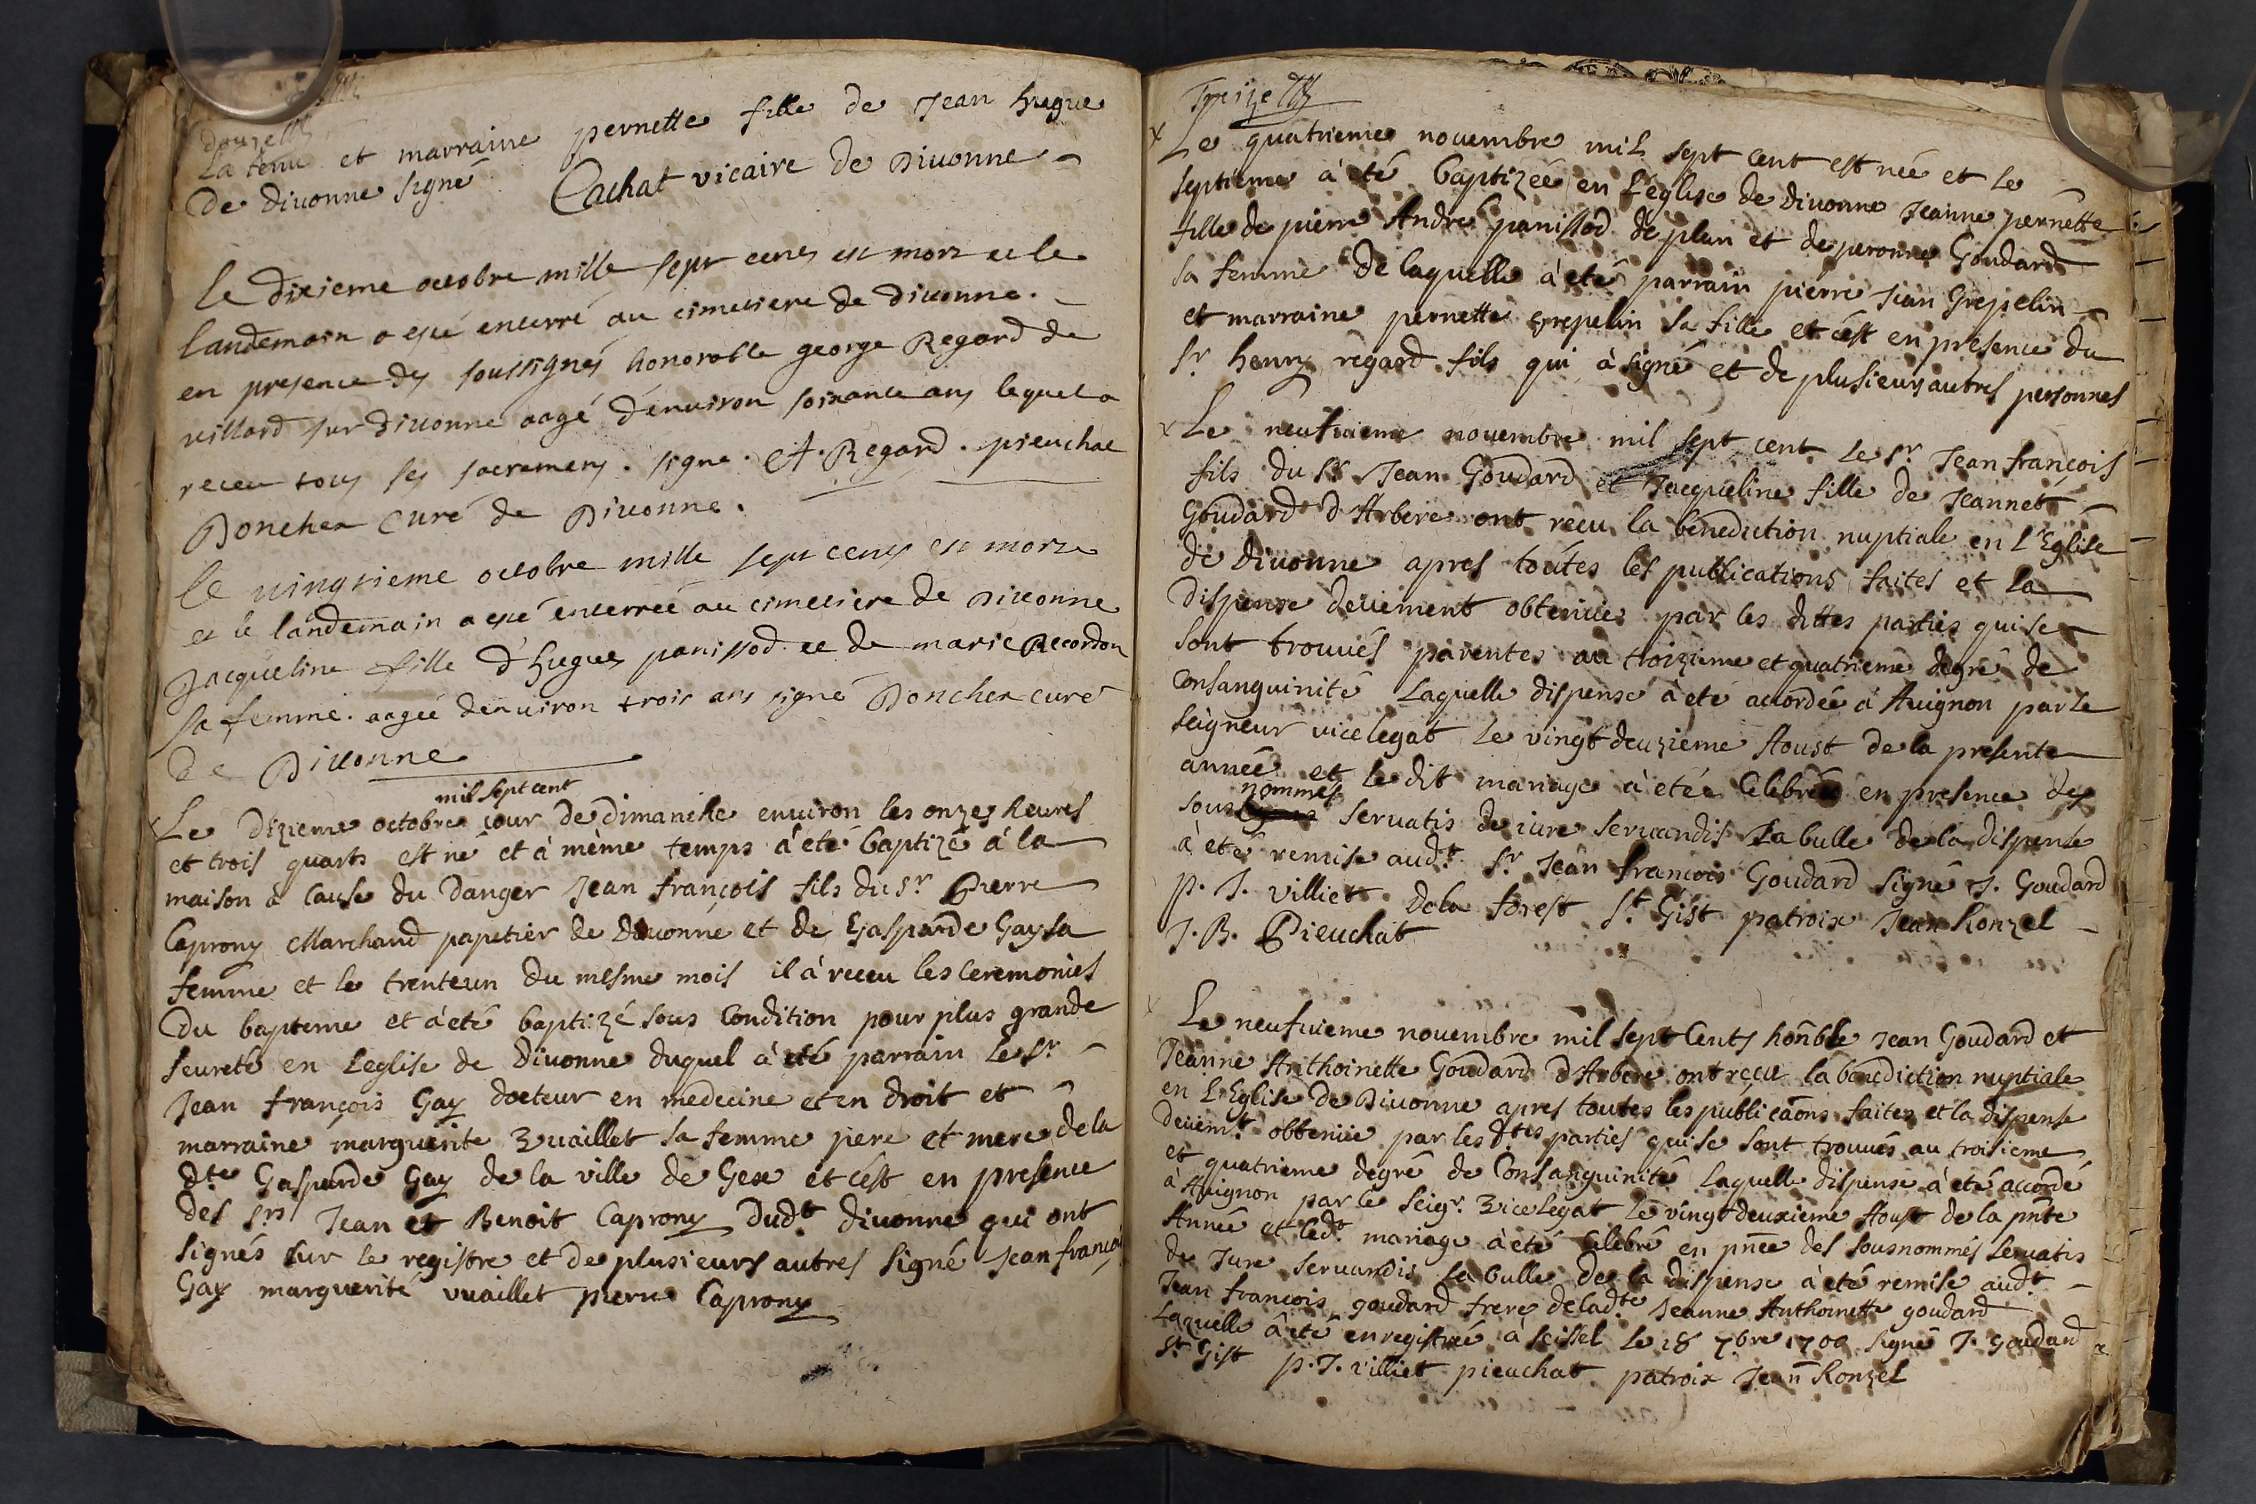 douze
La tenu et marraine pernette fille de Jean hugue
De divonne signé Cachat vicaire de Divonne
Le dixieme octobre mille sept cens est mort et le
landemain a esté enterré au cimetiere de divonne.
en presence des soussignés honorable george Regard de
villard sur divonne aagé d'environ soixante ans lequel a
receu tous ses sacremens. signe. A. Regard. pieuchat
Poncher Curé de Divonne.
Le vingtieme octobre mille sept cens est morte
et le landemain a esté enterrée au cimetiere de Divonne
Jacqueline fille d'hugues panissod et de marie Recordon
sa femme. aagée d'environ trois ans signe Poncher curé
De Divonne
mil sept cent
Le dizieme octobre jour de dimanche environ les onze heures
et trois quarts est né et à mème temps à été baptizé à la
maison à Cause du Danger Jean françois fils du Sr Pierre
Caprony Marchand papetier de Divonne et de Gasparde Gay sa
femme et le trenteun du mesme mois il à receu les Ceremonies
Du bapteme et à été baptizé sous Condition pour plus grande
seureté en Leglise de divonne duquel à été parrain le Sr
Jean françois Gay docteur en medecine et en droit et
marraine marguerite Vuaillet sa femme pere et mere de la
dte Gasparde Gay de la ville de Gex et c'est en presence
des srs Jean et Benoit Caprony Dudt divonne qui ont
signés sur le registre et de plusieurs autres signé Jean françoi
Gay marguerite vuaillet pierre Caprony
Treize
x Le quatrieme novembre mil sept cent est née et le
septieme à été baptizée en L'église de divonne Jeanne pernette
fille de pierre André panissod de plan et de peronne Goudard
sa femme de laquelle à été parrain pierre Jean Grepelin
et marraine pernette grepelin sa fille et c'est en presence du
Sr henry regard fils qui à signé et de plusieurs autres personnes
x Le neufvieme novembre mil sept cent Le Sr Jean françois
fils du Sr Jean Goudard et Jacqueline fille de Jeannet
Goudard d'Arbere ont recu la benediction nuptiale en L'Eglise
de Divonne apres toutes les publications faites et la
Dispense deuement obtenüe par les dittes parties qui se
sont trouvés parentes au troizieme et quatrieme degré de
Consanguinité Laquelle dispense à été accordée à Avignon par Le
seigneur vicelegat Le vingt deuzieme Aoust de la presente
année et le dit mariage à étée Celebrée en presence des
nommes
sous servatis de iure servandis La bulle de la dispense
à été remise audt Sr Jean francois Goudard signé J. Goudard
p. J. villiet Dela forest St Gist patroix Jean Ronzel
J. B. Pieuchat
x Le neufvieme novembre mil sept Cents honble Jean Goudard et
Jeanne Anthoinette Goudard d'Arbere ont reçu la benediction nuptiale
en L'Eglise de Divonne apres toutes les publicãons faites et la dispense
Deuemt obtenüe par les dtes parties qui se sont trouvés au troisieme
et quatrieme degré de Consanguinité Laquelle dispense à été accordé
à Avignon par le Seigr Vicelegat Le vingt deuxieme Aoust de la pnte
Année et ledt mariage à été Celebré en pnce des sousnommés servatis
de Jure servandis La bulle de la dispense à été remise audt
Jean françois goudard frere de ladte Jeanne Anthoinette goudard
Laquelle à été enregistrée à seissel Le 18 7bre 1700 signé J. Goudard
St Gist p. J. villiet pieuchat patroix Jean Ronzel